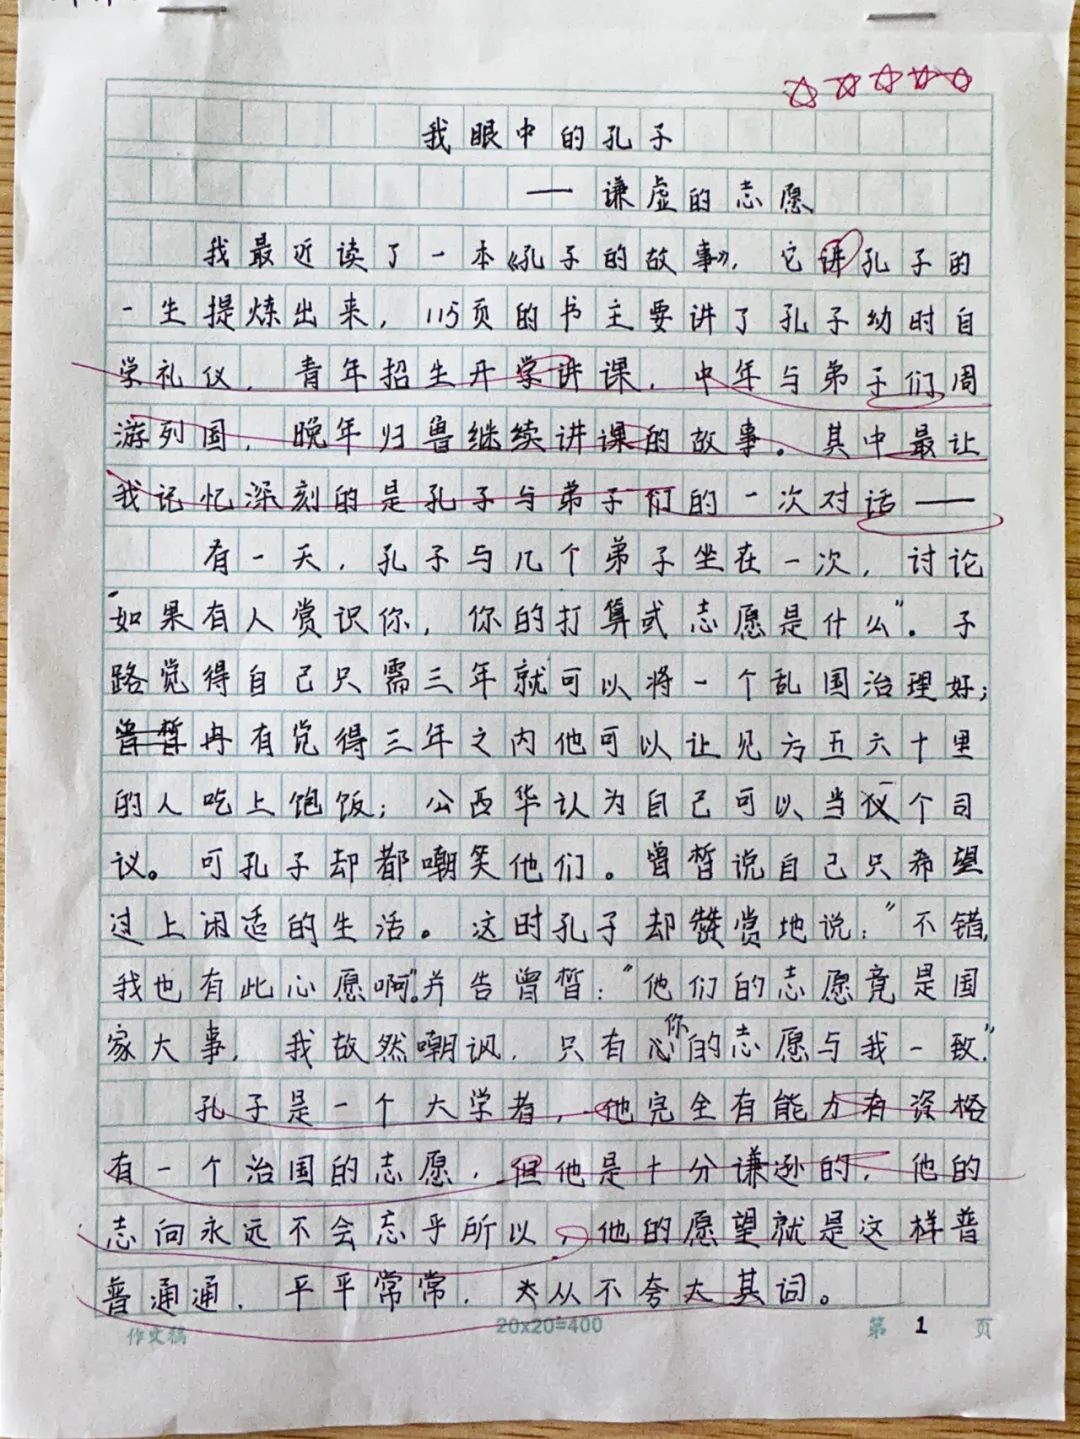 我眼中的孔子
——谦虚的志愿
我最近读了一本《孔子的故事》，它讲孔子的
一生提炼出来，115页的书主要讲了孔子幼时自
学礼仪，青年招生开学讲课，中年与弟子们周
游列国，晚年归鲁继续讲课的故事。其中最让
我记忆深刻的是孔子与弟子们的一次对话——
有一天，孔子与几个弟子坐在一次，讨论
“如果有人赏识你，你的打算或志愿是什么”。子
路觉得自己只需三年就可以将一个乱国治理好；
冉有觉得三年之内他可以让见方五六十里
的人吃上饱饭；公西华认为自己可以当一个司
议。可孔子却都嘲笑他们。曾皙说自己只希望
过上闲适的生活。这时孔子却赞赏地说：“不错，
我也有此心愿啊”。并告曾皙：“他们的志愿竟是国
家大事，我故然嘲讽，只有你的志愿与我一致。”
孔子是一个大学者，他完全有能力有资格
有一个治国的志愿，但他是十分谦逊的，他的
志向永远不会忘乎所以，他的愿望就是这样普
普通通，平平常常，从不夸大其词。
作文稿 20x20=400 第 1 页